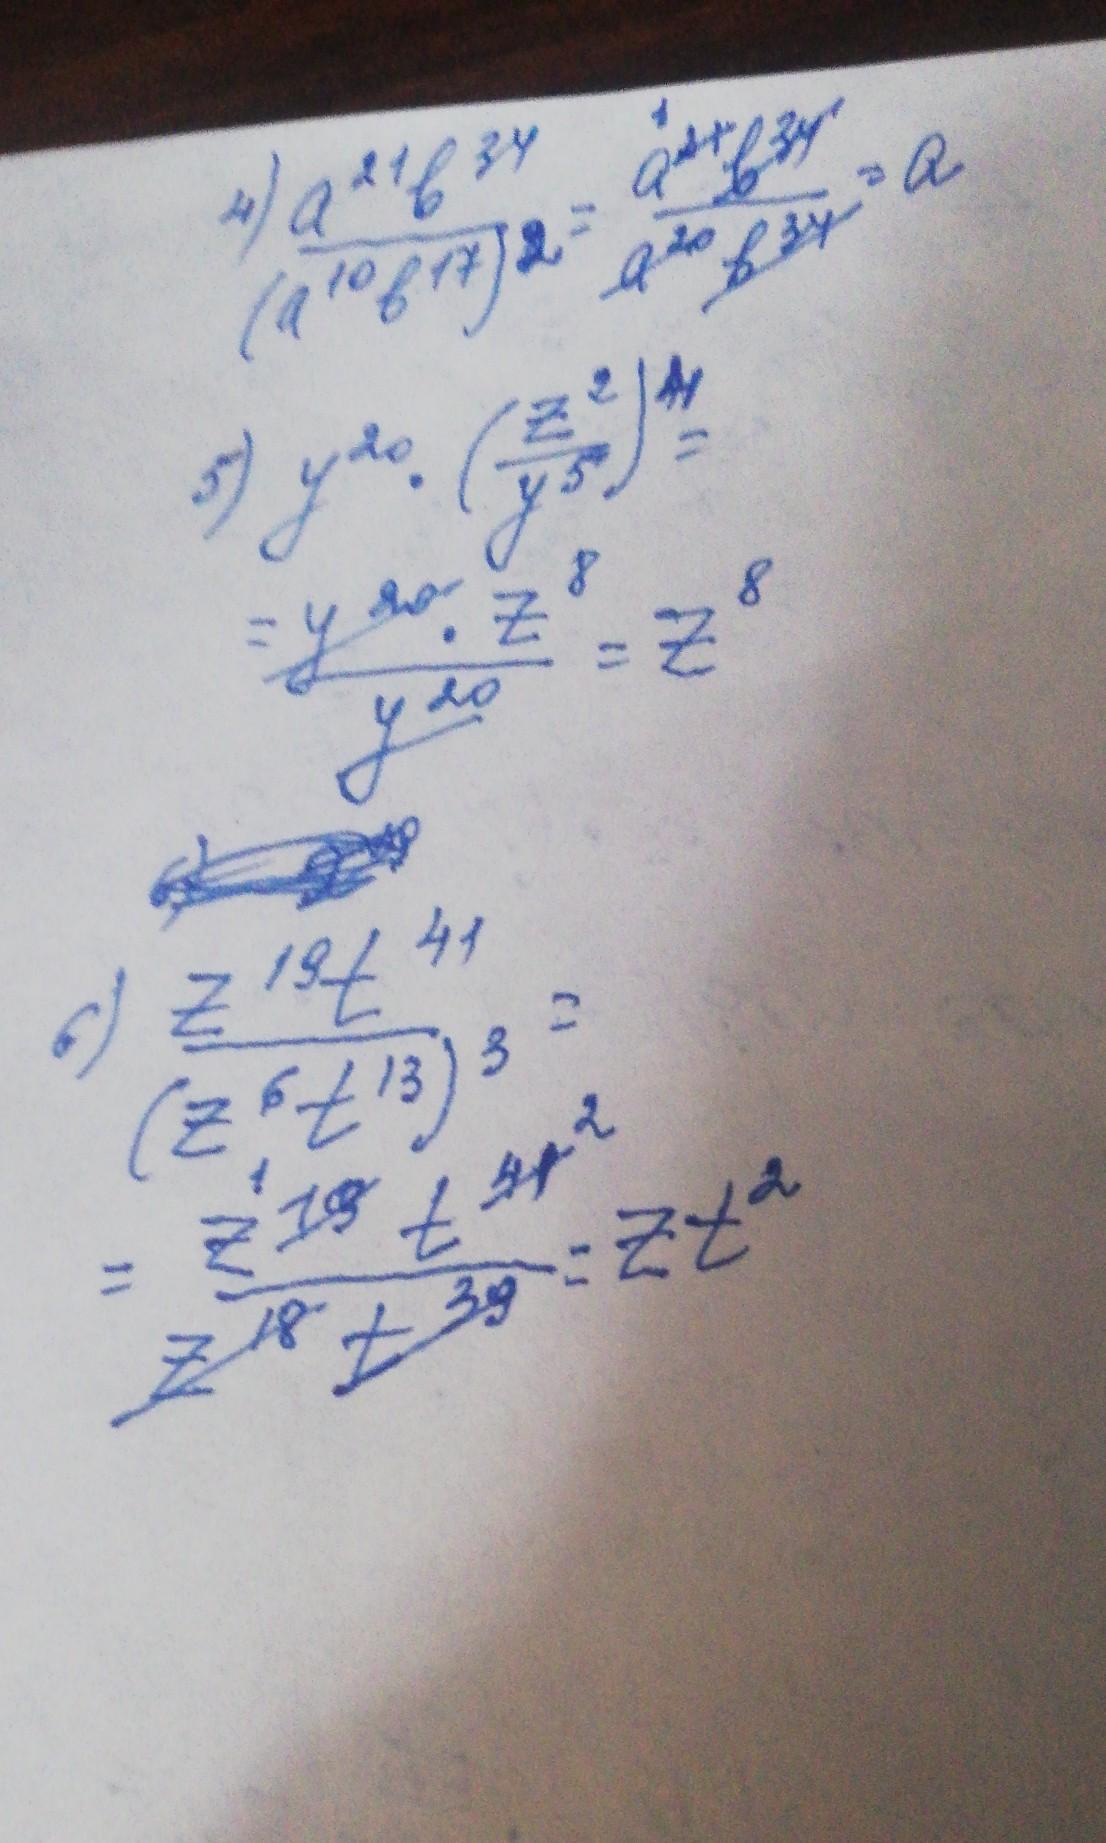 4) a²¹b³⁴/(a¹⁰b¹⁷)² = a²¹b³⁴/a²⁰b³⁴ = a
5) y²⁰ · (z²/y⁵)⁴ =
= y²⁰ · z⁸/y²⁰ = z⁸
6) z¹⁹t⁴¹/(z⁶t¹³)³ =
= z¹⁹t⁴¹/z¹⁸t³⁹ = zt²